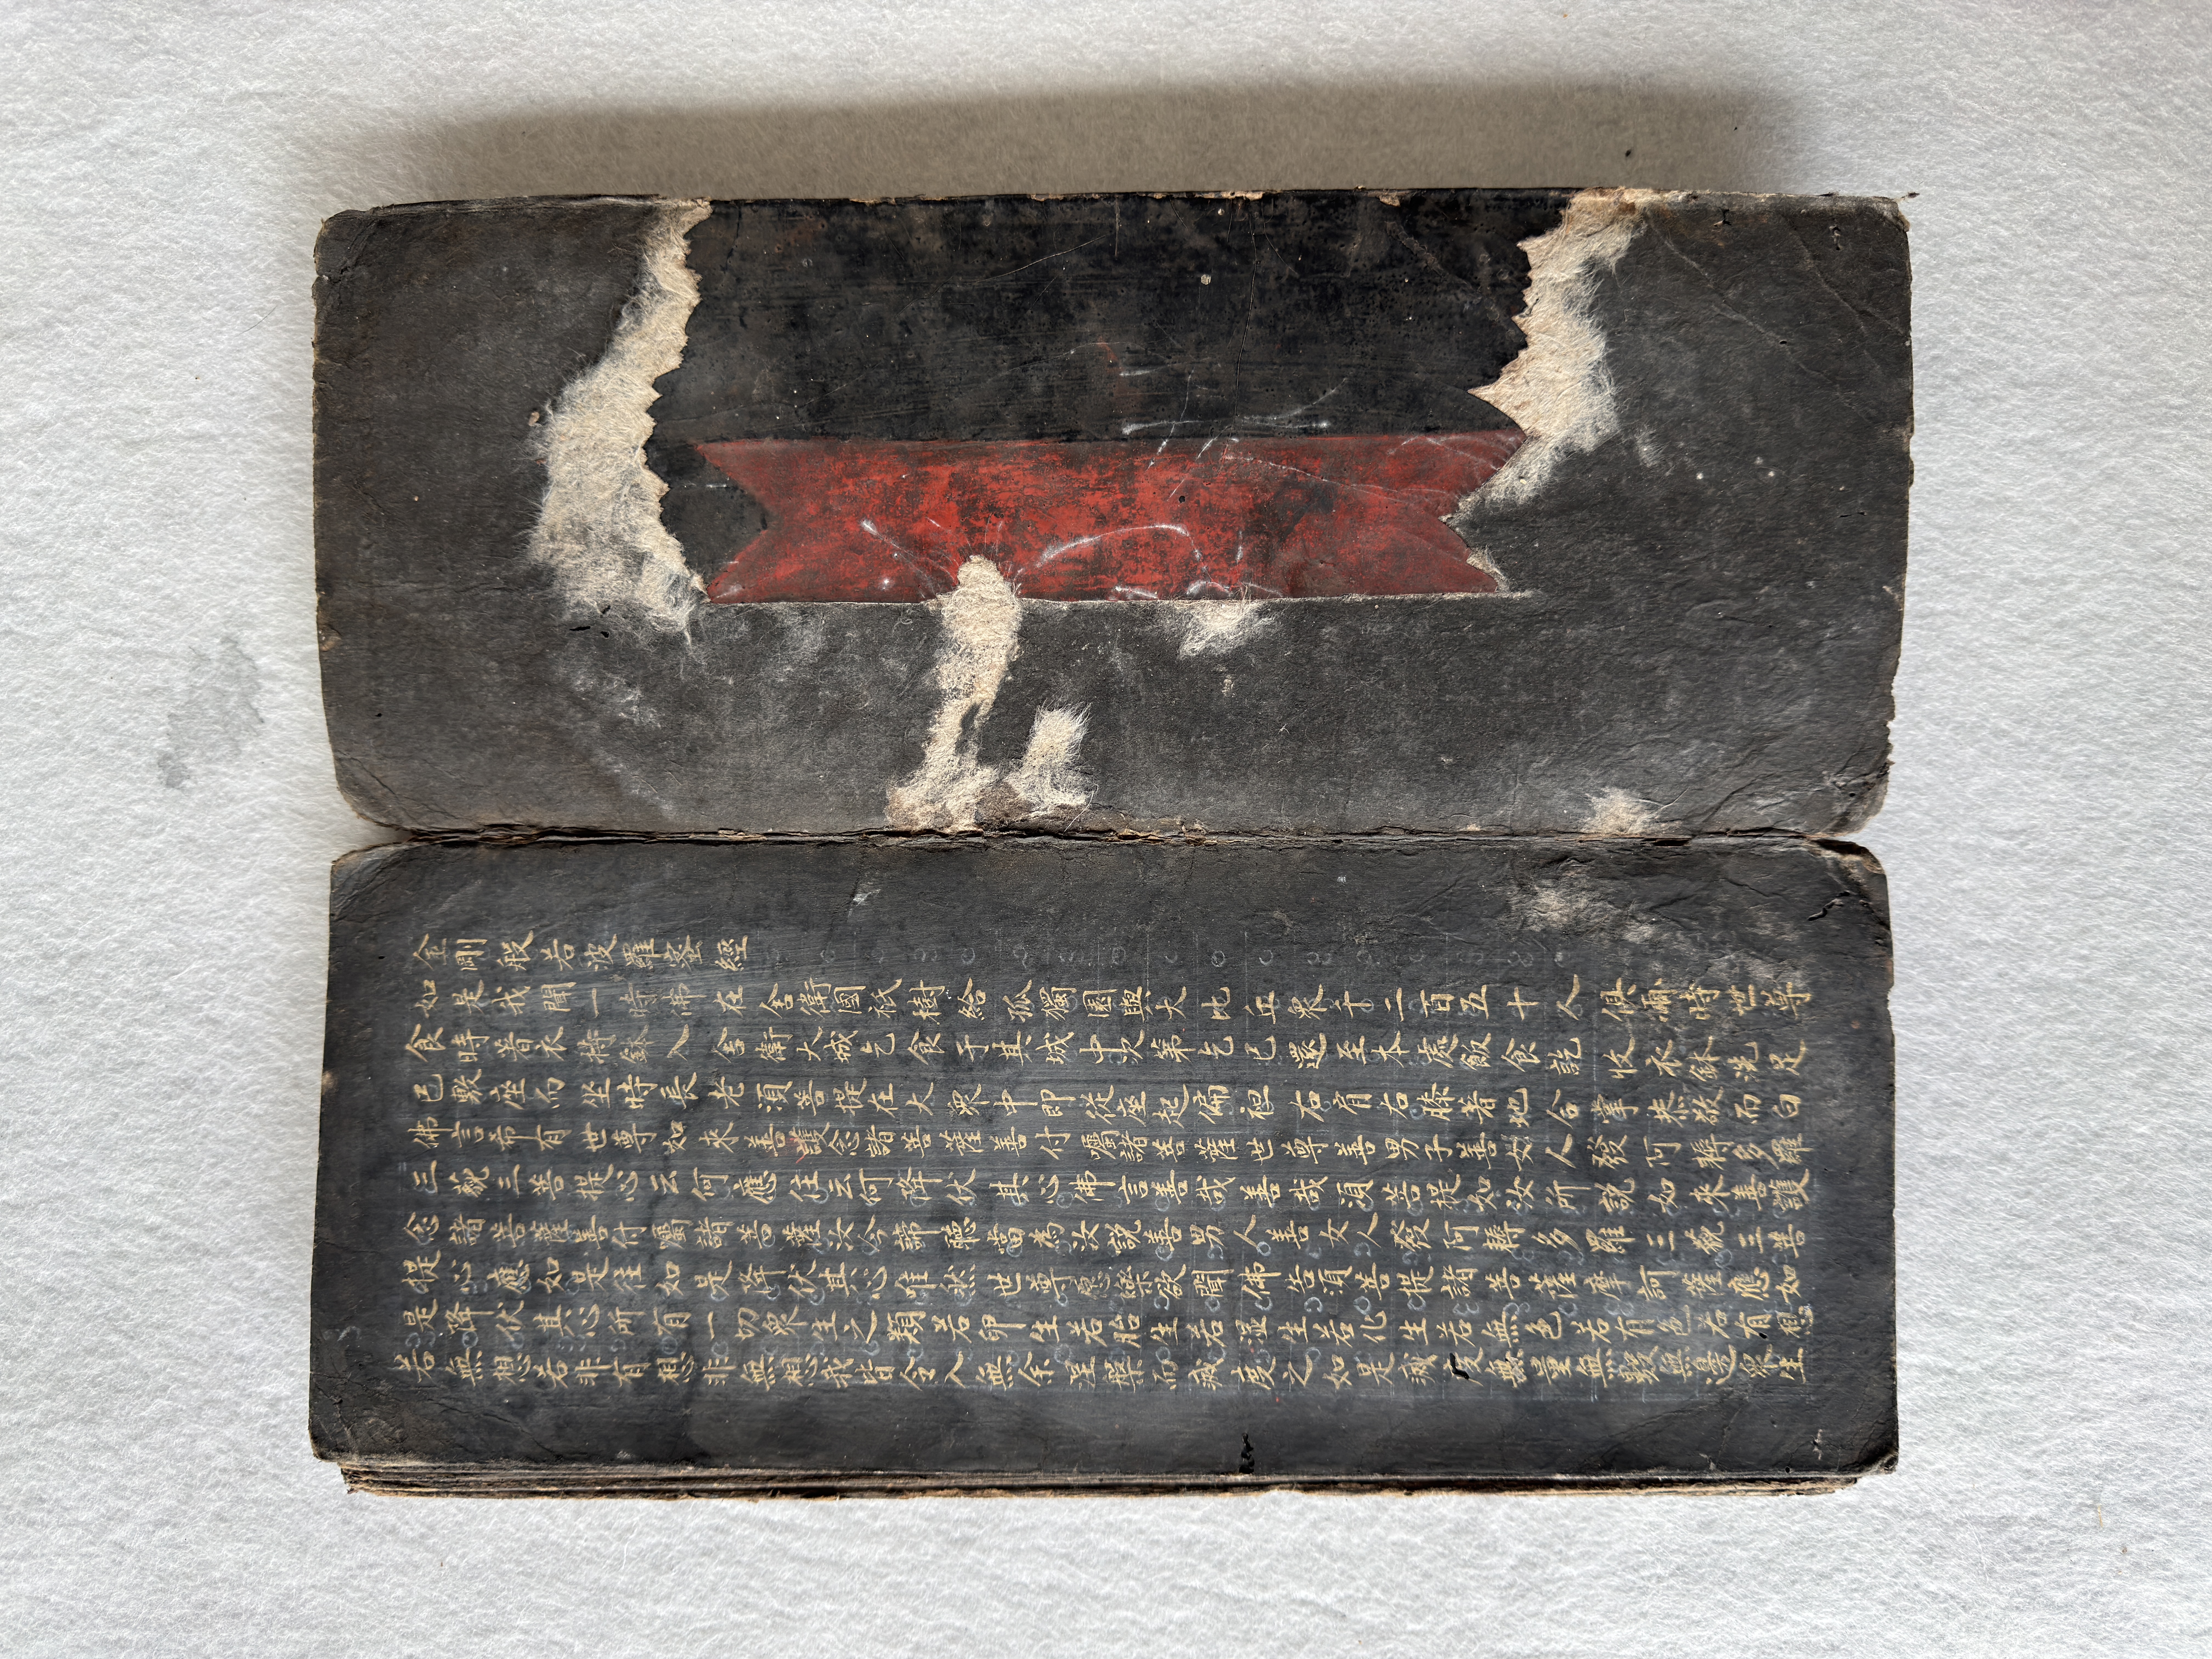 金剛般若波羅蜜經
如是我聞一時佛在舍衛國祇樹給孤獨園與大比丘衆千二百五十人俱爾時世尊
食時著衣持鉢入舍衛大城乞食于其城中次第乞已還至本處飯食訖收衣鉢洗足
已敷座而坐時長老須菩提在大衆中即從座起偏袒右肩右膝着地合掌恭敬而白
佛言希有世尊如來善護念諸菩薩善付囑諸菩薩世尊善男子善女人發阿耨多羅
三藐三菩提心云何應住云何降伏其心佛言善哉善哉須菩提如汝所說如來善護
念諸菩薩善付囑諸菩薩汝今諦聽當為汝說善男人善女人發阿耨多羅三藐三菩
提心應如是住如是降伏其心唯然世尊願樂欲聞佛告須菩提諸菩薩摩訶薩應如
是降伏其心所有一切衆生之類若卵生若胎生若濕生若化生若無色若有色若有想
若無想若非有想非無想我皆令入無余涅槃而滅度之如是滅度無量無數無邊衆生